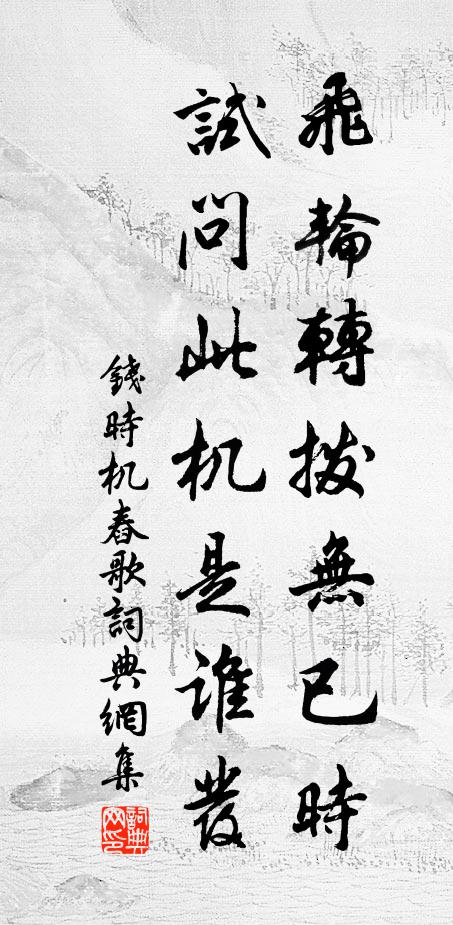 飛輪轉撥無已時
試問此机是谁發
錢時机舂歌詞典網集
詞典网印